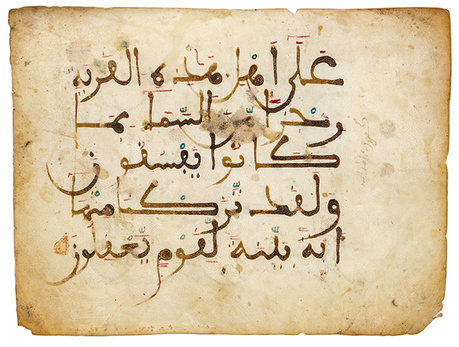 عَلَىٰ أَهْلِ هَٰذِهِ الْقَرْيَةِ
رِجْزًا مِنَ السَّمَاءِ بِمَا
كَانُوا يَفْسُقُونَ
وَلَقَدْ تَرَكْنَا مِنْهَا
آيَةً بَيِّنَةً لِقَوْمٍ يَعْقِلُونَ